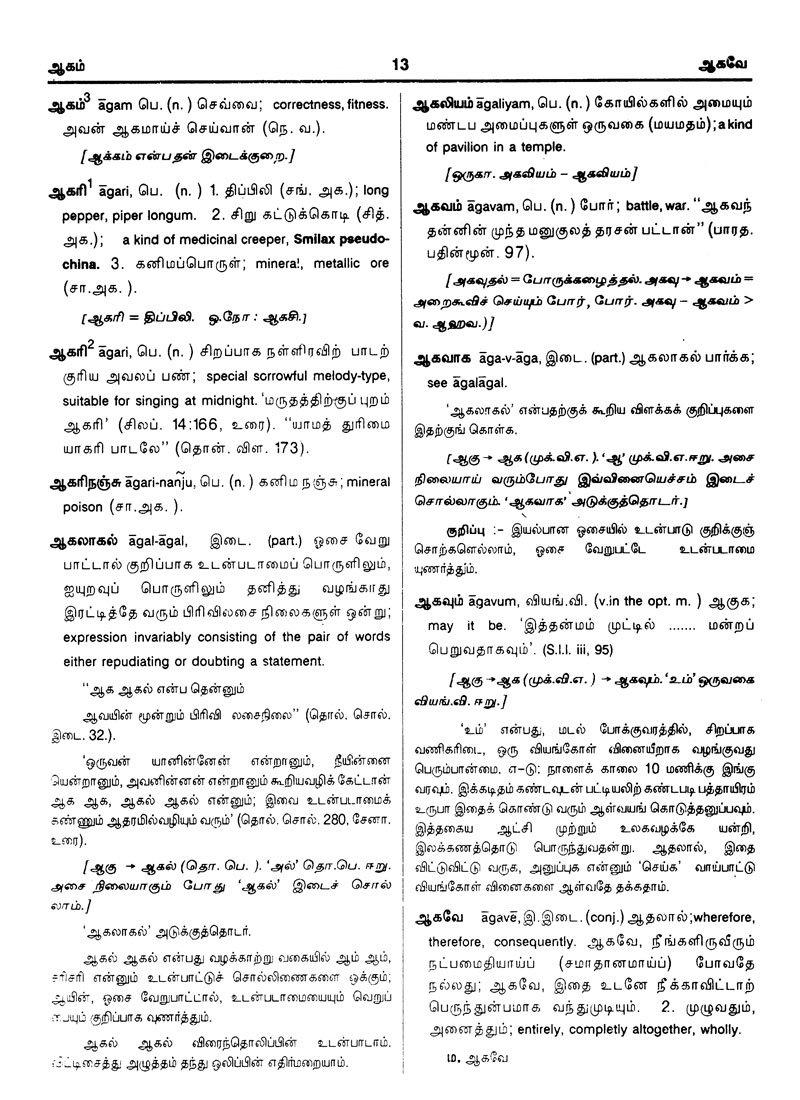 ஆகம்
13
ஆகவே
ஆகம்3 āgam பெ. (n. ) செவ்வை; correctness, fitness.
அவன் ஆகமாய்ச் செய்வான் (நெ. வ.).
[ஆக்கம் என்பதன் இடைக்குறை.]
ஆகரி1 āgari, பெ. (n. ) 1. திப்பிலி (சங். அக.); long
pepper, piper longum. 2. சிறு கட்டுக்கொடி (சித்.
அக.); a kind of medicinal creeper, Smilax pseudo-
china. 3. கனிமப்பொருள்; mineral, metallic ore
(சா.அக. ).
[ஆகரி = திப்பிலி. ஒ.நோ : ஆகசி.]
ஆகரி2 āgari, பெ. (n. ) சிறப்பாக நள்ளிரவிற் பாடற்
குரிய அவலப் பண்; special sorrowful melody-type,
suitable for singing at midnight. ‘மருதத்திற்குப் புறம்
ஆகரி’ (சிலப். 14:166, உரை). “யாமத் துரிமை
யாகரி பாடலே” (தொன். விள. 173).
ஆகரிநஞ்சு āgari-nañju, பெ. (n. ) கனிம நஞ்சு; mineral
poison (சா.அக. ).
ஆகலாகல் āgal-āgal, இடை. (part.) ஓசை வேறு
பாட்டால் குறிப்பாக உடன்படாமைப் பொருளிலும்,
ஐயுறவுப் பொருளிலும் தனித்து வழங்காது
இரட்டித்தே வரும் பிரிவிலசை நிலைகளுள் ஒன்று;
expression invariably consisting of the pair of words
either repudiating or doubting a statement.
“ஆக ஆகல் என்ப தென்னும்
ஆவயின் மூன்றும் பிரிவி லசைநிலை” (தொல். சொல்.
இடை. 32.).
‘ஒருவன் யானின்னேன் என்றானும், நீயின்னை
யென்றானும், அவனின்னன் என்றானும் கூறியவழிக் கேட்டான்
ஆக ஆக, ஆகல் ஆகல் என்னும்; இவை உடன்படாமைக்
கண்ணும் ஆதரமில்வழியும் வரும்’ (தொல். சொல். 280, சேனா.
உரை).
[ஆகு → ஆகல் (தொ. பெ. ). ‘அல்’ தொ.பெ. ஈறு.
அசை நிலையாகும் போது ‘ஆகல்’ இடைச் சொல்
லாம்.]
‘ஆகலாகல்’ அடுக்குத்தொடர்.
ஆகல் ஆகல் என்பது வழக்காற்று வகையில் ஆம் ஆம்,
சரிசரி என்னும் உடன்பாட்டுச் சொல்லிணைகளை ஒக்கும்;
ஆயின், ஓசை வேறுபாட்டால், உடன்படாமையையும் வெறுப்
பையும் குறிப்பாக வுணர்த்தும்.
ஆகல் ஆகல் விரைந்தொலிப்பின் உடன்பாடாம்.
விட்டிசைத்து அழுத்தம் தந்து ஒலிப்பின் எதிர்மறையாம்.
ஆகலியம் āgaliyam, பெ. (n. ) கோயில்களில் அமையும்
மண்டப அமைப்புகளுள் ஒருவகை (மயமதம்); a kind
of pavilion in a temple.
[ஒருகா. அகவியம் – ஆகவியம்]
ஆகவம் āgavam, பெ. (n. ) போர்; battle, war. “ஆகவந்
தன்னின் முந்த மனுகுலத் தரசன் பட்டான்” (பாரத.
பதின்மூன். 97).
[அகவுதல் = போருக்கழைத்தல். அகவு → ஆகவம் =
அறைகூவிச் செய்யும் போர், போர். அகவு – ஆகவம் >
வ. ஆஹவ.)]
ஆகவாக āga-v-āga, இடை. (part.) ஆகலாகல் பார்க்க;
see āgalāgal.
‘ஆகலாகல்’ என்பதற்குக் கூறிய விளக்கக் குறிப்புகளை
இதற்குங் கொள்க.
[ஆகு → ஆக (முக்.வி.எ. ). ‘ஆ’ முக்.வி.எ.ஈறு. அசை
நிலையாய் வரும்போது இவ்வினையெச்சம் இடைச்
சொல்லாகும். ‘ஆகவாக’ அடுக்குத்தொடர்.]
குறிப்பு :- இயல்பான ஓசையில் உடன்பாடு குறிக்குஞ்
சொற்களெல்லாம், ஓசை வேறுபட்டே உடன்படாமை
யுணர்த்தும்.
ஆகவும் āgavum, வியங்.வி. (v.in the opt. m. ) ஆகுக;
may it be. ‘இத்தன்மம் முட்டில் ....... மன்றப்
பெறுவதாகவும்’. (S.I.I. iii, 95)
[ஆகு → ஆக (முக்.வி.எ. ) → ஆகவும். ‘உம்’ ஒருவகை
வியங்.வி. ஈறு.]
‘உம்’ என்பது, மடல் போக்குவரத்தில், சிறப்பாக
வணிகரிடை, ஒரு வியங்கோள் வினையீறாக வழங்குவது
பெரும்பான்மை. எ–டு: நாளைக் காலை 10 மணிக்கு இங்கு
வரவும். இக்கடிதம் கண்டவுடன் பட்டியலிற் கண்டபடி பத்தாயிரம்
உருபா இதைக் கொண்டு வரும் ஆள்வயங் கொடுத்தனுப்பவும்.
இத்தகைய ஆட்சி முற்றும் உலகவழக்கே யன்றி,
இலக்கணத்தொடு பொருந்துவதன்று. ஆதலால், இதை
விட்டுவிட்டு வருக, அனுப்புக என்னும் ‘செய்க’ வாய்பாட்டு
வியங்கோள் வினைகளை ஆள்வதே தக்கதாம்.
ஆகவே āgavē, இ.இடை. (conj.) ஆதலால்; wherefore,
therefore, consequently. ஆகவே, நீங்களிருவீரும்
நட்பமைதியாய்ப் (சமாதானமாய்ப்) போவதே
நல்லது; ஆகவே, இதை உடனே நீக்காவிட்டாற்
பெருந்துன்பமாக வந்துமுடியும். 2. முழுவதும்,
அனைத்தும்; entirely, completly altogether, wholly.
ம. ஆகவே